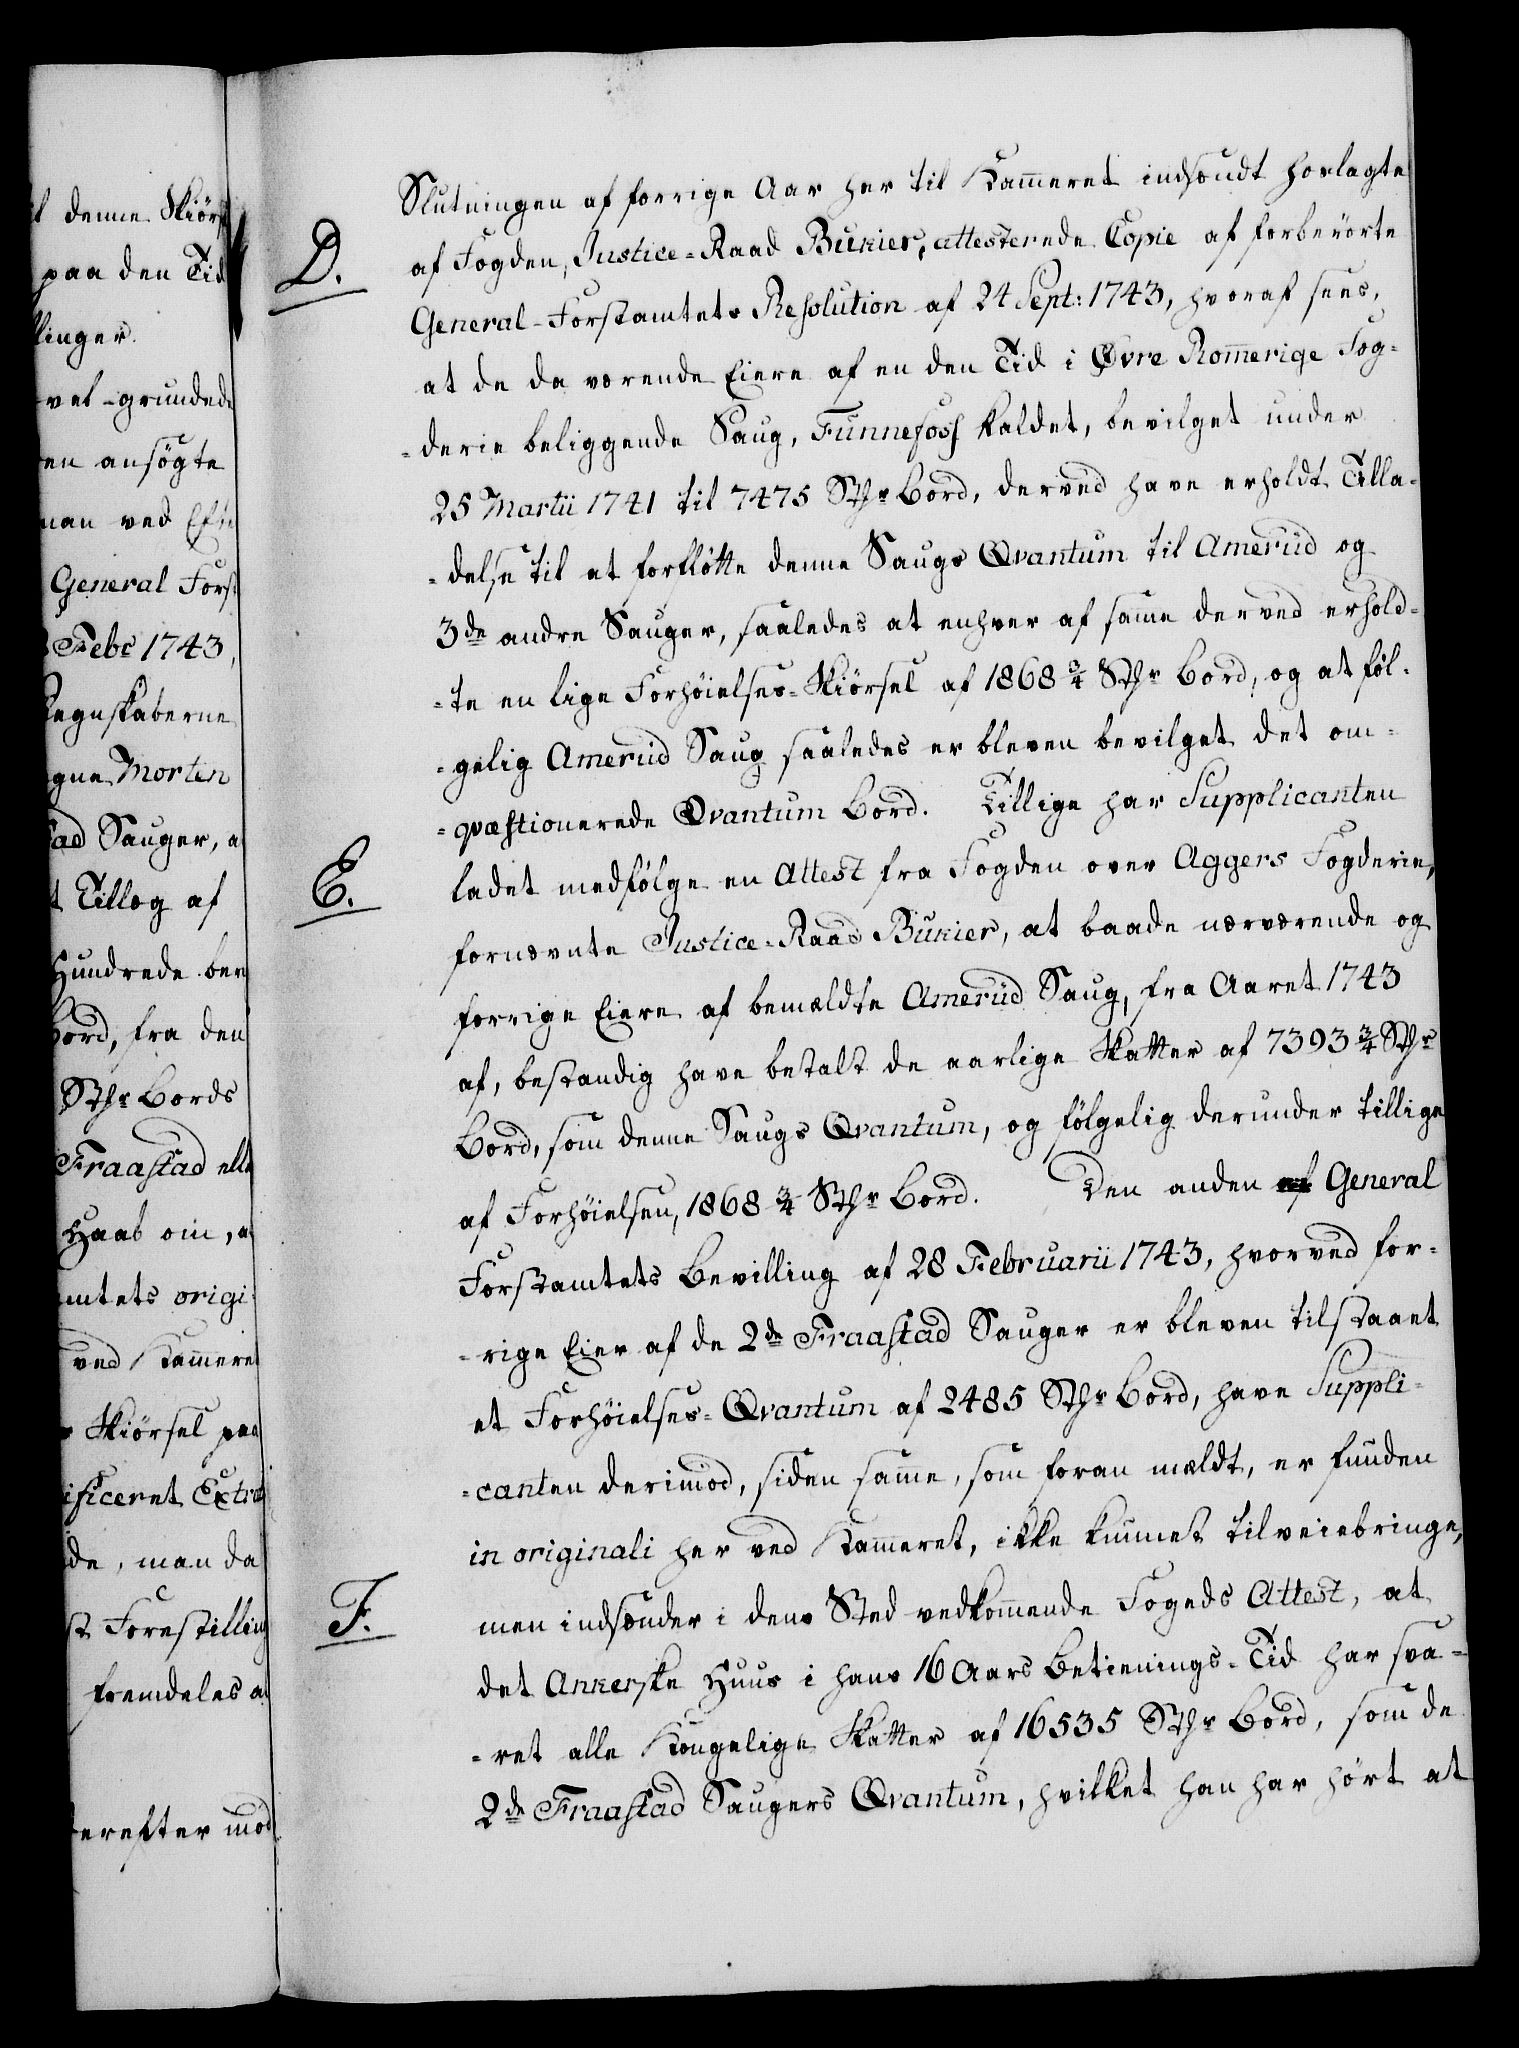 t denne Kiörs
paa den Tid
linger.
vel-grundede
en ansögte
man ved Efte
General Forst
Febr 1743,
Regnskaberne
gne Morten
ad Sauger, a
t Tillæg af
Hundrede ber
Bord, fra den
Sthr Bords
Fraastad elle
Haab om, a
mtets origi
ved Kammeret
Kiörsel paa
ificeret Extra
de, man da
st Forestilling
fremdeles a
erefter mod
Slutningen af forrige Aar her til Kam̄eret indsendt forlagte
D.
af Fogden, Justice-Raad Bukier, attesterede Copie af forberörte
General-Forstamtets Resolution af 24 Sept: 1743, hvoraf sees,
at de da værende Eiere af en den Tid i Øvre Rom̄erige Fog-
-derie beliggende Saug, Funnefoss kaldet, bevilget under
25 Martii 1741 til 7475 Sthr Bord, derved have erholdt Tilla-
-delse til at forfløtte denne Saugs Qvantum til Amerud og
3de andre Sauger, saaledes at enhver af sam̄e derved erhold-
-te en lige Forhöielses-Kiörsel af 1868 3/4 Sthr Bord, og at föl-
-gelig Amerud Saug saaledes er bleven bevilget det om-
-qvæstionerede Qvantum Bord. Tillige har Supplicanten
E.
ladet medfölge en Attest fra Fogden over Aggers Fogderie,
fornævnte Justice-Raad Bukier, at baade nærværende og
forrige Eiere af bemældte Amerud Saug, fra Aaret 1743
af, bestandig have betalt de aarlige Skatter af 7393 3/4 Sthr
Bord, som denne Saugs Qvantum, og fölgelig derunder tillige
af Forhöielsen, 1868 3/4 Sthr Bord. Den anden af General
Forstamtets Bevilling af 28 Februarii 1743, hvorved for-
-rige Eier af de 2de Fraastad Sauger er bleven tilstaaet
et Forhöielses-Qvantum af 2485 Sthr Bord, have Suppli-
-canten derimod, siden sam̄e, som foran mældt, er funden
in originali her ved Kam̄eret, ikke kunnet tilveiebringe,
F.
men indsender i dens Sted vedkom̄ende Fogeds Attest, at
det Ankerske Huus i hans 16 Aars Betienings-Tid har sva-
-ret alle Kongelige Skatter af 16535 Sthr Bord, som de
2de Fraastad Saugers Qvantum, hvilket han har hört at